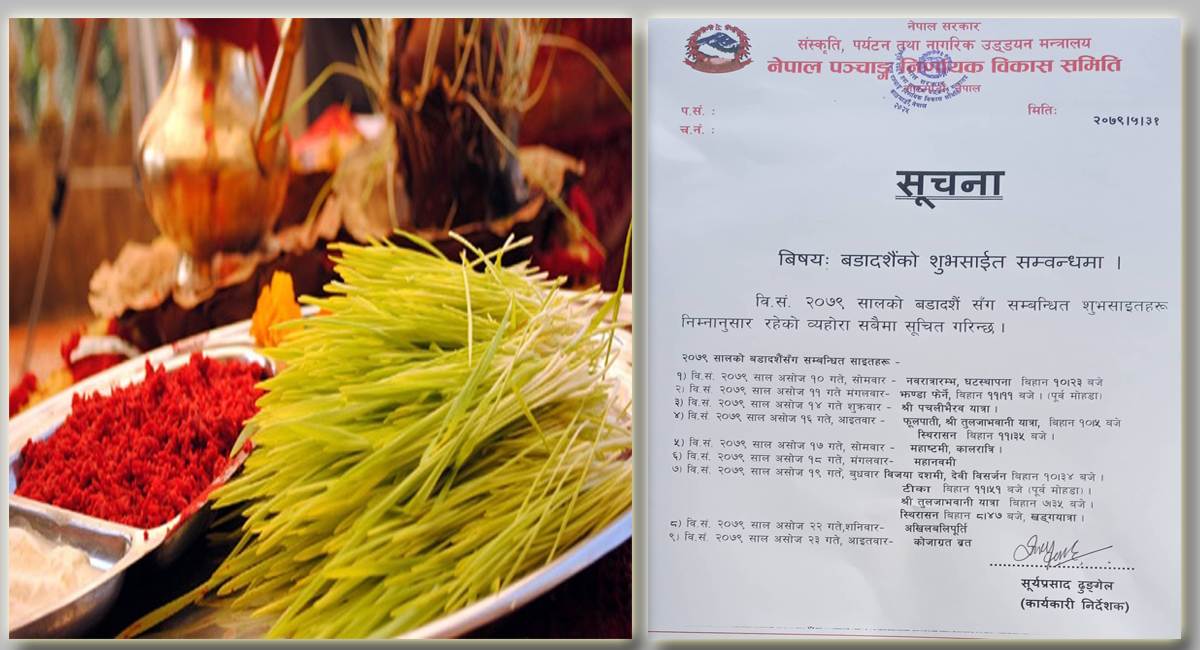 नेपाल सरकार
संस्कृति, पर्यटन तथा नागरिक उड्डयन मन्त्रालय
नेपाल पञ्चाङ्ग निर्णायक विकास समिति
नेपाल
प.सं. :
च.नं. :
मितिः
२०७९।५।३१
सूचना
बिषयः बडादशैंको शुभसाईत सम्वन्धमा ।
वि.सं. २०७९ सालको बडादशैं सँग सम्बन्धित शुभसाइतहरू
निम्नानुसार रहेको व्यहोरा सबैमा सूचित गरिन्छ ।
२०७९ सालको बडादशैंसँग सम्बन्धित साइतहरू -
१) वि.सं. २०७९ साल असोज १० गते, सोमवार - नवरात्रारम्भ, घटस्थापना बिहान १०।२३ बजे
२) वि.सं. २०७९ साल असोज ११ गते मंगलवार- झण्डा फेर्ने, बिहान ११।११ बजे । (पूर्व मोहडा)
३) वि.सं. २०७९ साल असोज १४ गते शुक्रवार - श्री पचलीभैरव यात्रा ।
४) वि.सं. २०७९ साल असोज १६ गते, आइतवार - फूलपाती, श्री तुलजाभवानी यात्रा, बिहान १०।५ बजे
स्थिरासन बिहान ११।३५ बजे ।
५) वि.सं. २०७९ साल असोज १७ गते, सोमवार - महाष्टमी, कालरात्रि ।
६) वि.सं. २०७९ साल असोज १८ गते, मंगलवार- महानवमी
७) वि.सं. २०७९ साल असोज १९ गते, बुधवार विजया दशमी, देवी विसर्जन बिहान १०।३४ बजे ।
टीका बिहान ११।५१ बजे (पूर्व मोहडा) ।
श्री तुलजाभवानी यात्रा बिहान ७।३५ बजे ।
स्थिरासन बिहान ८।४७ बजे, खड्गयात्रा ।
८) वि.सं. २०७९ साल असोज २२ गते,शनिवार- अखिलबलिपूर्ति
९) वि.सं. २०७९ साल असोज २३ गते, आइतवार- कोजाग्रत ब्रत
सूर्यप्रसाद ढुङ्गेल
(कार्यकारी निर्देशक)